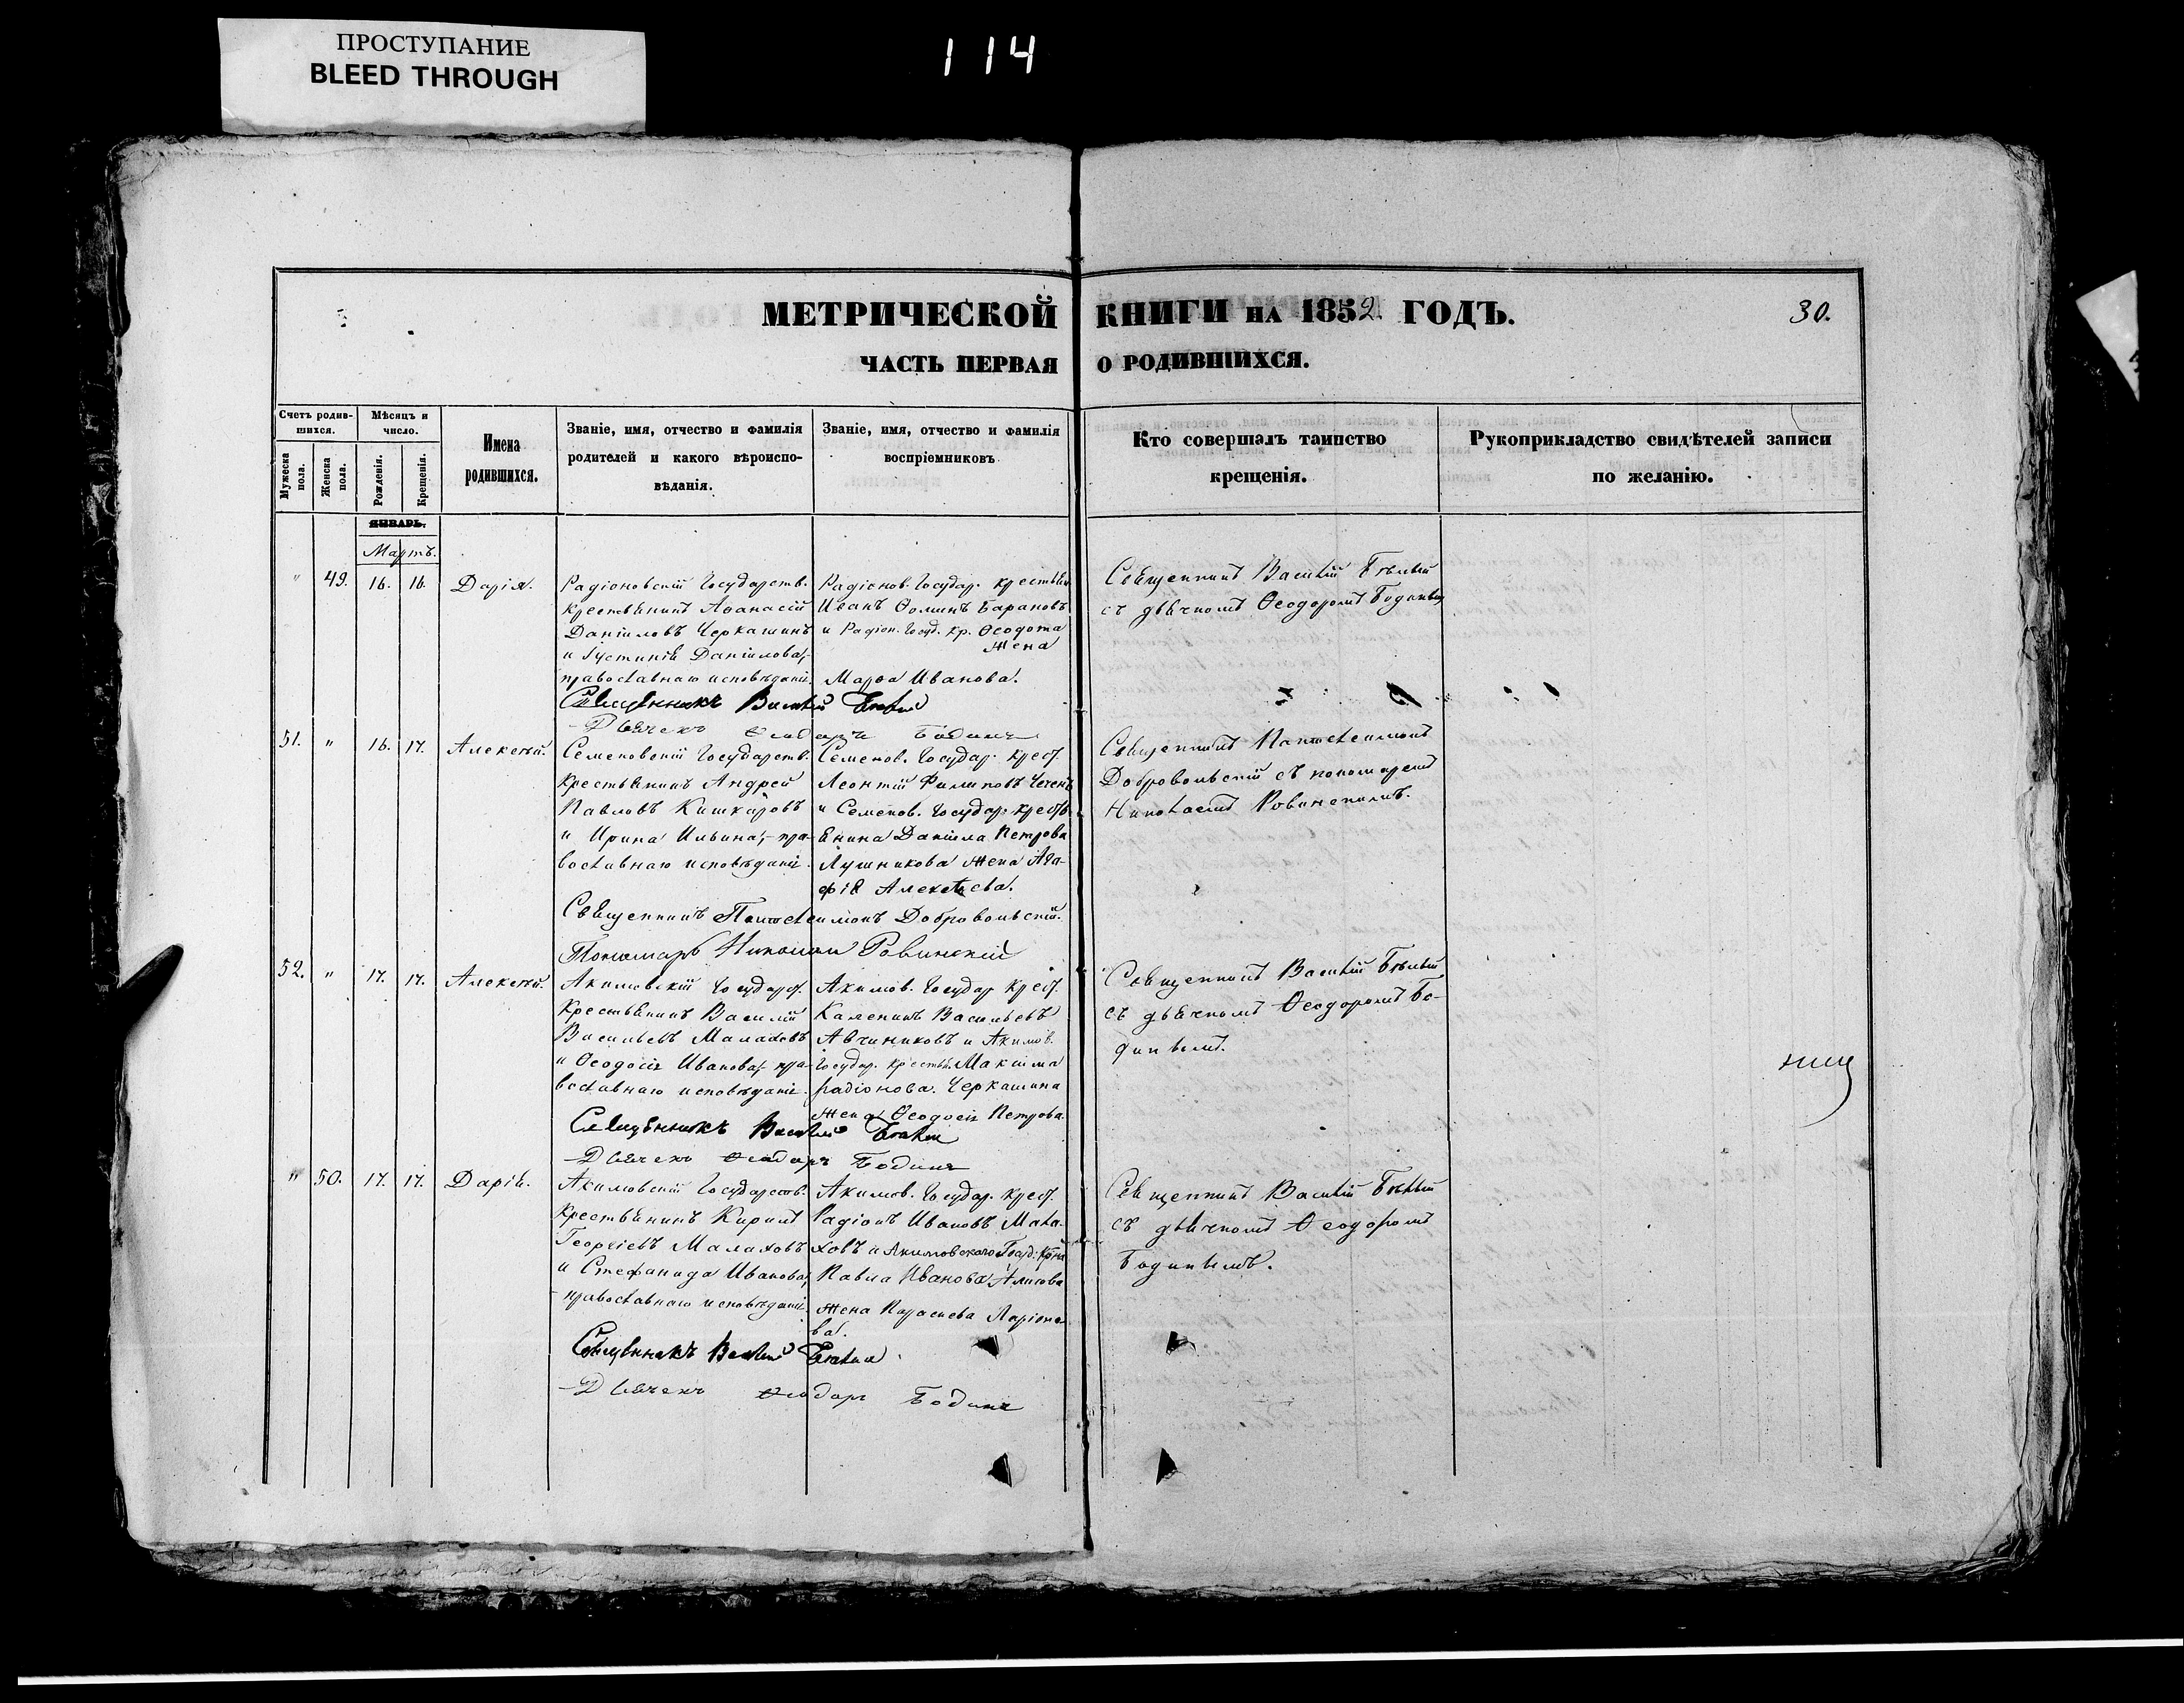 ПРОСТУПАНИЕ
BLEED THROUGH
114
МЕТРИЧЕСКОЙ КНИГИ НА 1852. ГОДЪ.
30.
ЧАСТЬ ПЕРВАЯ О РОДИВШИХСЯ.
Счетъ родив-
шихся.
Мужеска пола.
Женска пола.
Мѣсяцъ и
число.
Рожденія.
Крещенія.
Имена
родившихся.
Званіе, имя, отчество и фамилія
родителей и какого вѣроиспо-
вѣданія.
Званіе, имя, отчество и фамилія
воспріемниковъ
Кто совершалъ таинство
крещенія.
Рукоприкладство свидѣтелей записи
по желанію.
ЯНВАРЬ.
Мартъ.
" 49. 16. 16. Дарія.
Радіоновскій Государств.
крестьянинъ Аѳанасій
Даніиловъ Черкашинъ
и Іустинія Даніилова,-
православнаго исповѣданія.
Радіонов. Государ. крестьян.
Иванъ Ѳоминъ Барановъ
и Радіон. Госуд. кр. Ѳеодота
жена
Марѳа Иванова.
Священникъ Василій Бѣлый
съ дьячкомъ Ѳеодоромъ Бодинымъ
Священникъ Василій Бѣлый
Дьячекъ Ѳеодоръ Бодинъ
51. " 16. 17. Алексѣй.
Семеновскій Государств.
крестьянинъ Андрей
Павловъ Кишкаровъ
и Ирина Ильина,- пра-
вославнаго исповѣданія.
Семенов. Государ. крест.
Леонтій Филиповъ
и Семенов. Государ. крестья
янина Даніила Петрова
Лушникова жена Ага-
фія Алексѣева.
Священникъ Пантелеимонъ
Добровольскій съ пономаремъ
Николаемъ Ровинскимъ.
Священникъ Пантелеимонъ Добровольскій.
Пономарь Николай Ровинскій
52. " 17. 17. Алексѣй.
Акимовскій Государст.
крестьянинъ Василій
Васильевъ Малаховъ
и Ѳеодосія Иванова,- пра-
вославнаго исповѣданія.
Акимов. Государ крест.
Каленикъ Васильевъ
Авчиниковъ и Акимов.
Государ. крестьян. Максима
радіонова. Черкашина
жена Ѳеодосія Петрова
Священникъ Василій Бѣлый
съ дьячкомъ Ѳеодоромъ Бо-
динымъ.
Священникъ Василій Бѣлый
Дьячекъ Ѳеодоръ Бодинъ
" 50. 17. 17. Дарія.
Акимовскій Государств.
крестьянинъ Кирилъ
Георгіевъ Малаховъ
и Стефанида Иванова,
православнаго исповѣданія.
Акимов. Государ. крест.
Радіонъ Ивановъ Мала-
ховъ и Акимовскаго Госуд: кр-на
Павла Иванова
жена Параскева Ларіоно-
ва.
Священникъ Василій Бѣлый
съ дьячкомъ Ѳеодоромъ
Бодинымъ.
Священникъ Василій Бѣлый
Дьячекъ Ѳеодоръ Бодинъ